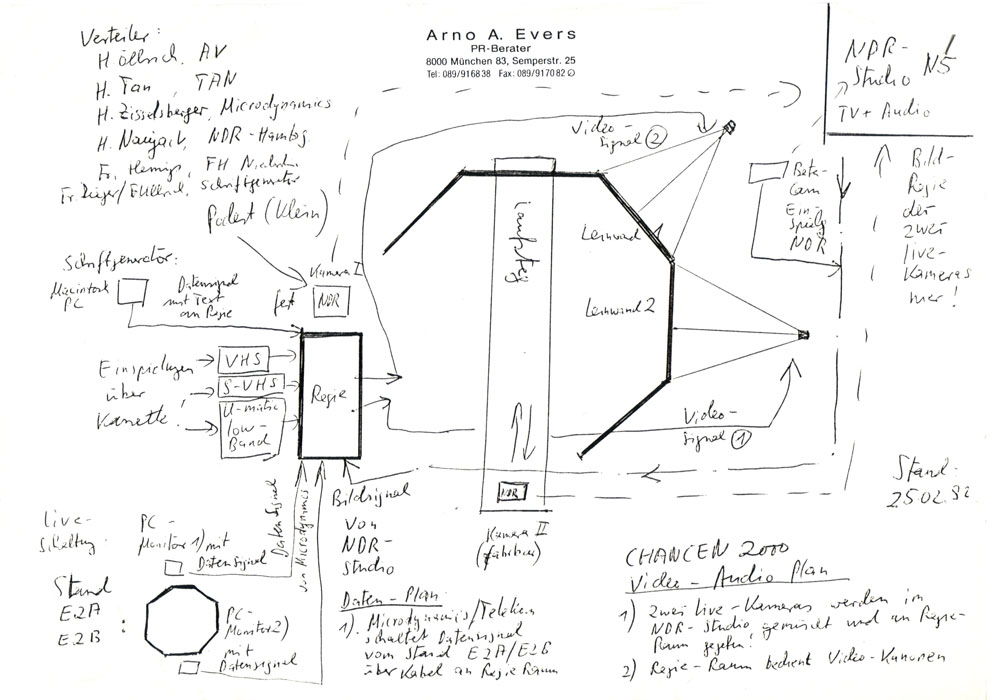 Verteiler:
H. Öllrich, AV
H. Tan, TAN
H. Zisselsberger, Microdynamics
H. NDR-Hambg.
Fr. Hennigs, FH
Schriftgenerator
Podest (Klein)
Arno A. Evers
PR-Berater
8000 München 83, Semperstr. 25
Tel: 089/916838 Fax: 089/917082
NDR-
Studio N5
TV + Audio
Video-
Signal 2
Beta-
Cam
Ein-
spielg
NDR
Bild-
Regie
der
zwei
live-
Kameras
hier!
Laufsteg
Leinwand 1
Leinwand 2
Schriftgenerator:
Macintosh
PC
Datensignal
mit Text
an Regie
Kamera I
fest
NDR
Einspielungen
über
Kassette:
VHS
S-VHS
U-matic
low-
Band
Regie
Video-
Signal 1
NDR
Kamera II
(fahrbar)
Stand:
25.02.92
Live-
Schaltung:
PC-
Monitor 1) mit
Datensignal
Datensignal
von Microdynamics
Bildsignal
von
NDR-
Studio
Stand
E2A
E2B :
PC-
Monitor 2)
mit
Datensignal
Daten-Plan:
1). Microdynamics/Telekom
schaltet Datensignal
vom Stand E2A/E2B
über Kabel an Regie Raum
CHANCEN 2000
Video-Audio Plan
1) Zwei Live-Kameras werden im
NDR-Studio gemischt und an Regie-
Raum gegeben!
2) Regie-Raum bedient Video-Kanonen